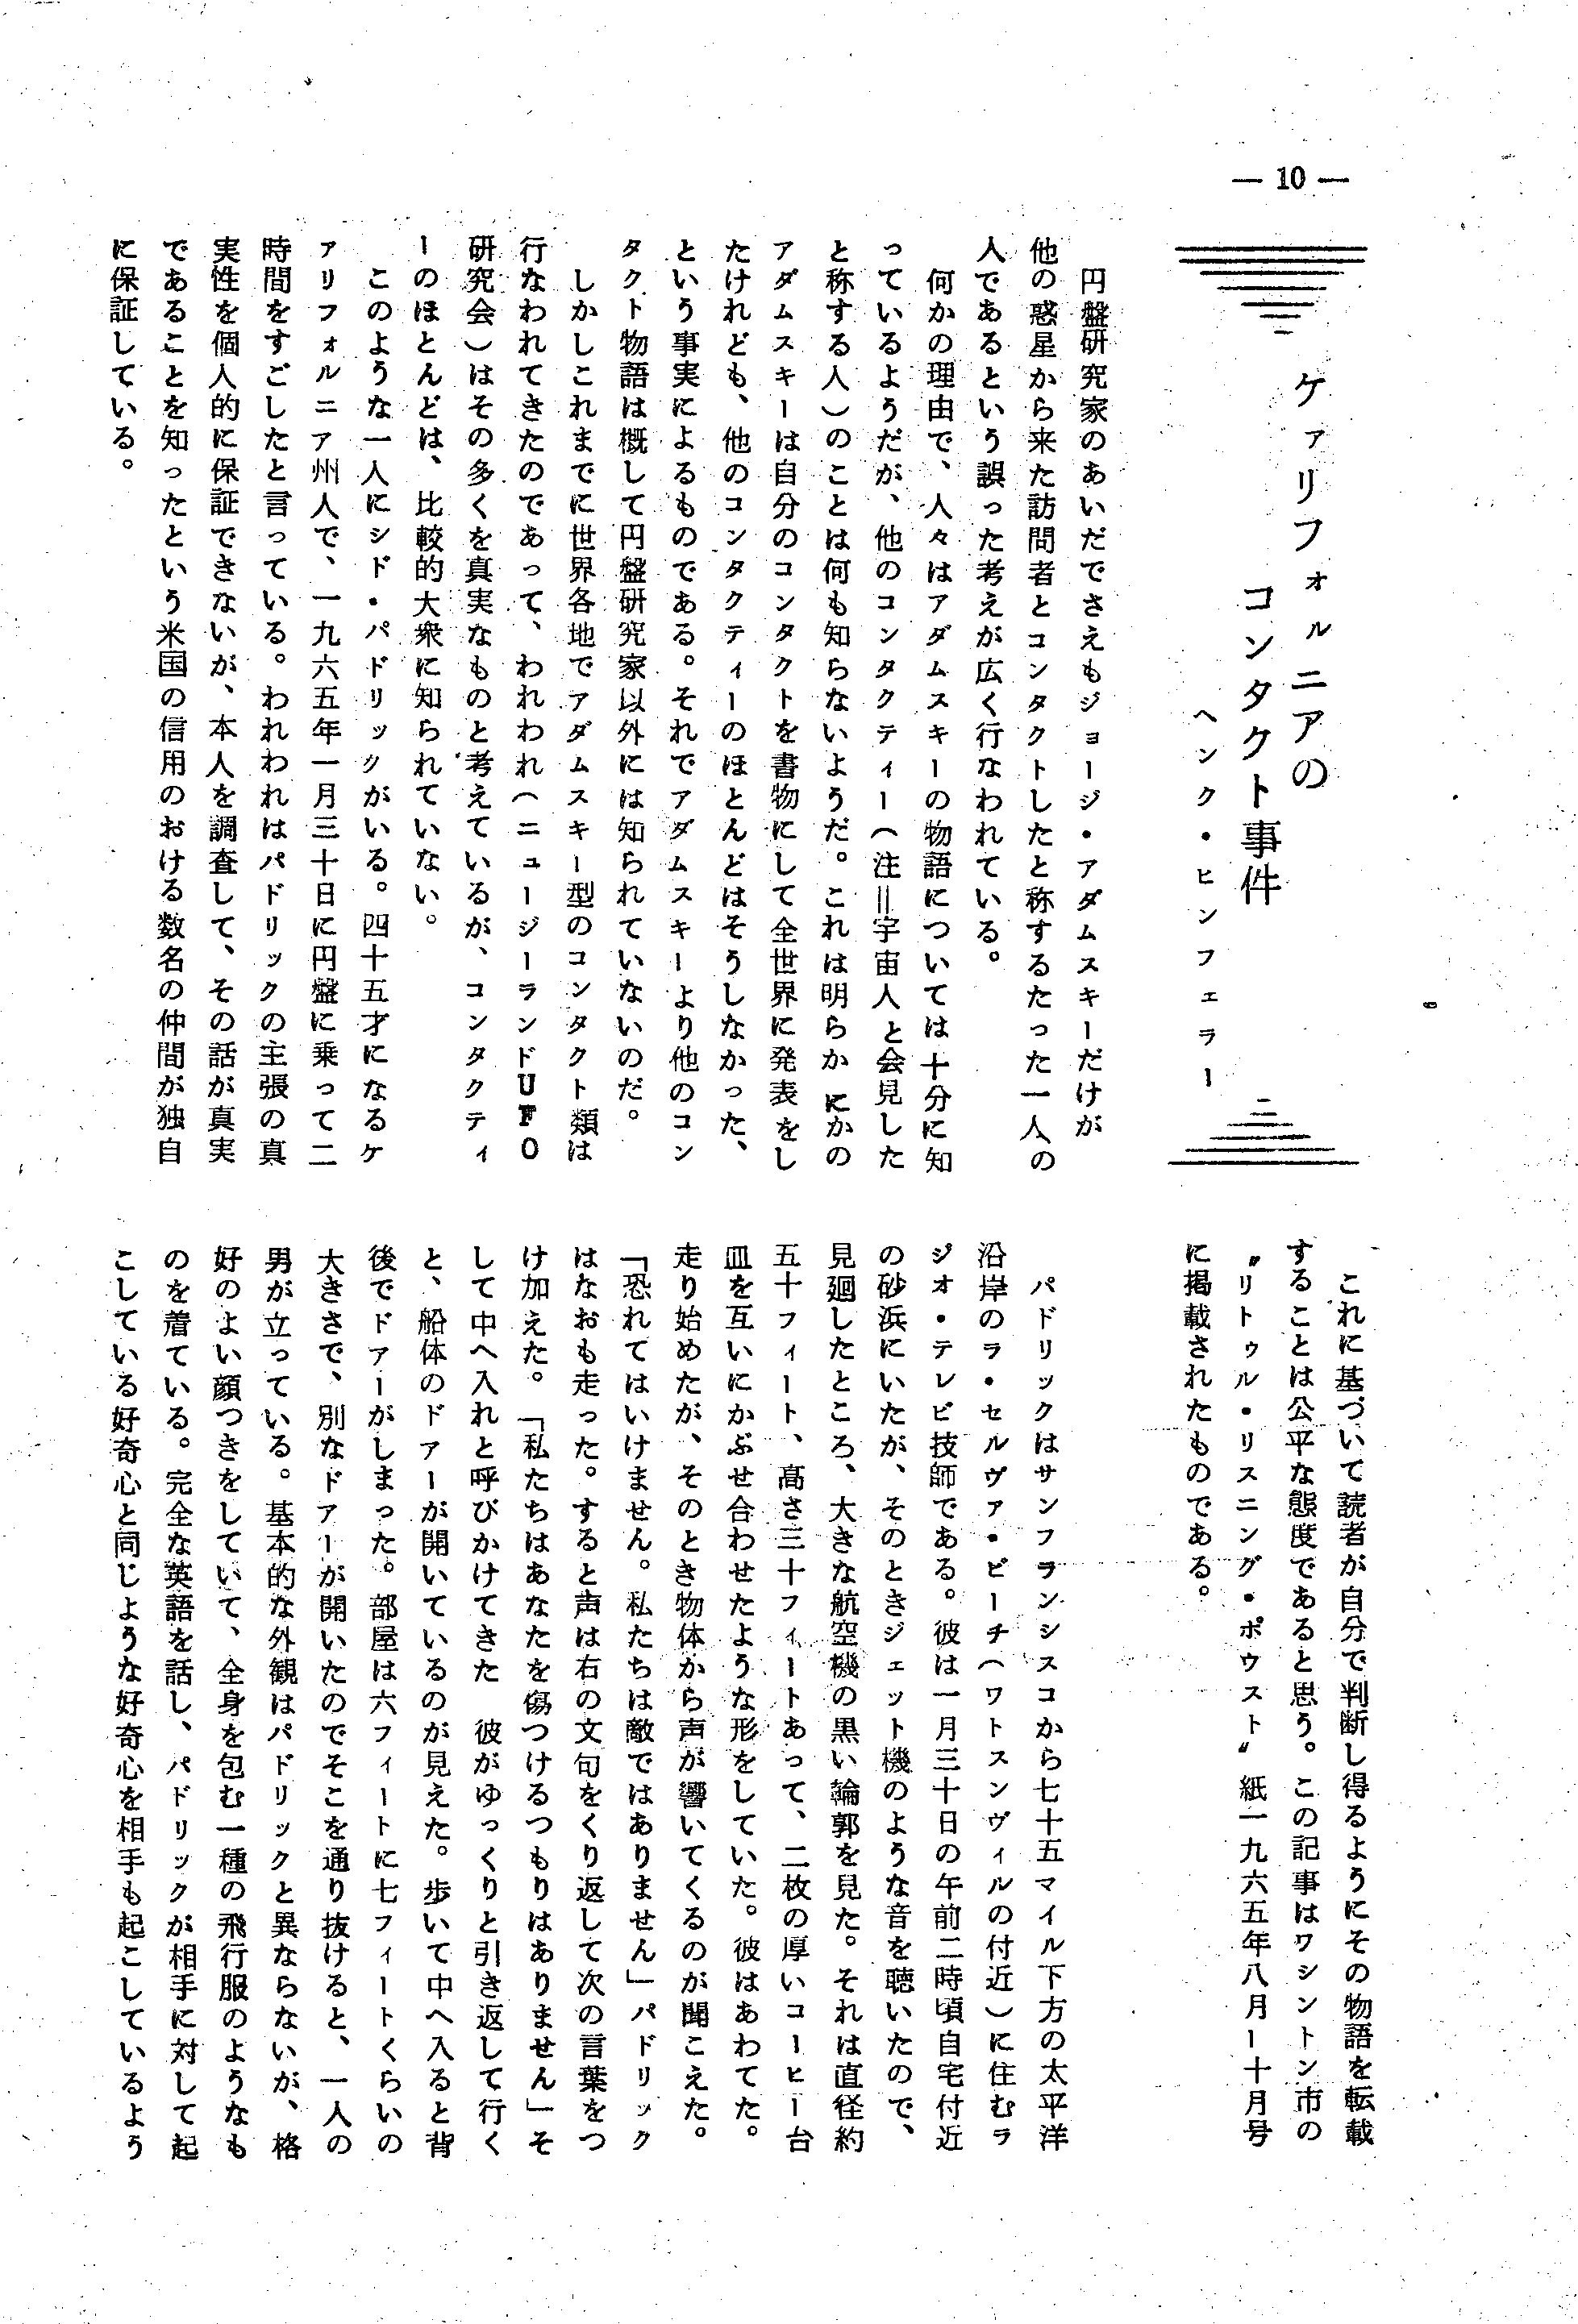 — 10 —
ケァリフォルニアの
コンタクト事件
ヘンク・ヒンフェラー
円盤研究家のあいだでさえもジョージ・アダムスキーだけが
他の惑星から来た訪問者とコンタクトしたと称するたった一人の
人であるという誤った考えが広く行なわれている。
何かの理由で、人々はアダムスキーの物語については十分に知
っているようだが、他のコンタクティー(注=宇宙人と会見した
と称する人)のことは何も知らないようだ。これは明らかにかの
アダムスキーは自分のコンタクトを書物にして全世界に発表をし
たけれども、他のコンタクティーのほとんどはそうしなかった、
という事実によるものである。それでアダムスキーより他のコン
タクト物語は概して円盤研究家以外には知られていないのだ。
しかしこれまでに世界各地でアダムスキー型のコンタクト類は
行なわれてきたのであって、われわれ(ニュージーランドUFO
研究会)はその多くを真実なものと考えているが、コンタクティ
ーのほとんどは、比較的大衆に知られていない。
このような一人にシド・パドリックがいる。四十五才になるケ
ァリフォルニア州人で、一九六五年一月三十日に円盤に乗って二
時間をすごしたと言っている。われわれはパドリックの主張の真
実性を個人的に保証できないが、本人を調査して、その話が真実
であることを知ったという米国の信用のおける数名の仲間が独自
に保証している。
これに基づいて読者が自分で判断し得るようにその物語を転載
することは公平な態度であると思う。この記事はワシントン市の
〝リトゥル・リスニング・ポウスト〟紙一九六五年八月ー十月号
に掲載されたものである。
パドリックはサンフランシスコから七十五マイル下方の太平洋
沿岸のラ・セルヴァ・ビーチ(ワトスンヴィルの付近)に住むラ
ジオ・テレビ技師である。彼は一月三十日の午前二時頃自宅付近
の砂浜にいたが、そのときジェット機のような音を聴いたので、
見廻したところ、大きな航空機の黒い輪郭を見た。それは直径約
五十フィート、高さ三十フィートあって、二枚の厚いコーヒー台
皿を互いにかぶせ合わせたような形をしていた。彼はあわてた。
走り始めたが、そのとき物体から声が響いてくるのが聞こえた。
「恐れてはいけません。私たちは敵ではありません」パドリック
はなおも走った。すると声は右の文句をくり返して次の言葉をつ
け加えた。「私たちはあなたを傷つけるつもりはありません」そ
して中へ入れと呼びかけてきた 彼がゆっくりと引き返して行く
と、船体のドアーが開いているのが見えた。歩いて中へ入ると背
後でドアーがしまった。部屋は六フィートに七フィートくらいの
大きさで、別なドアーが開いたのでそこを通り抜けると、一人の
男が立っている。基本的な外観はパドリックと異ならないが、格
好のよい顔つきをしていて、全身を包む一種の飛行服のようなも
のを着ている。完全な英語を話し、パドリックが相手に対して起
こしている好奇心と同じような好奇心を相手も起こしているよう